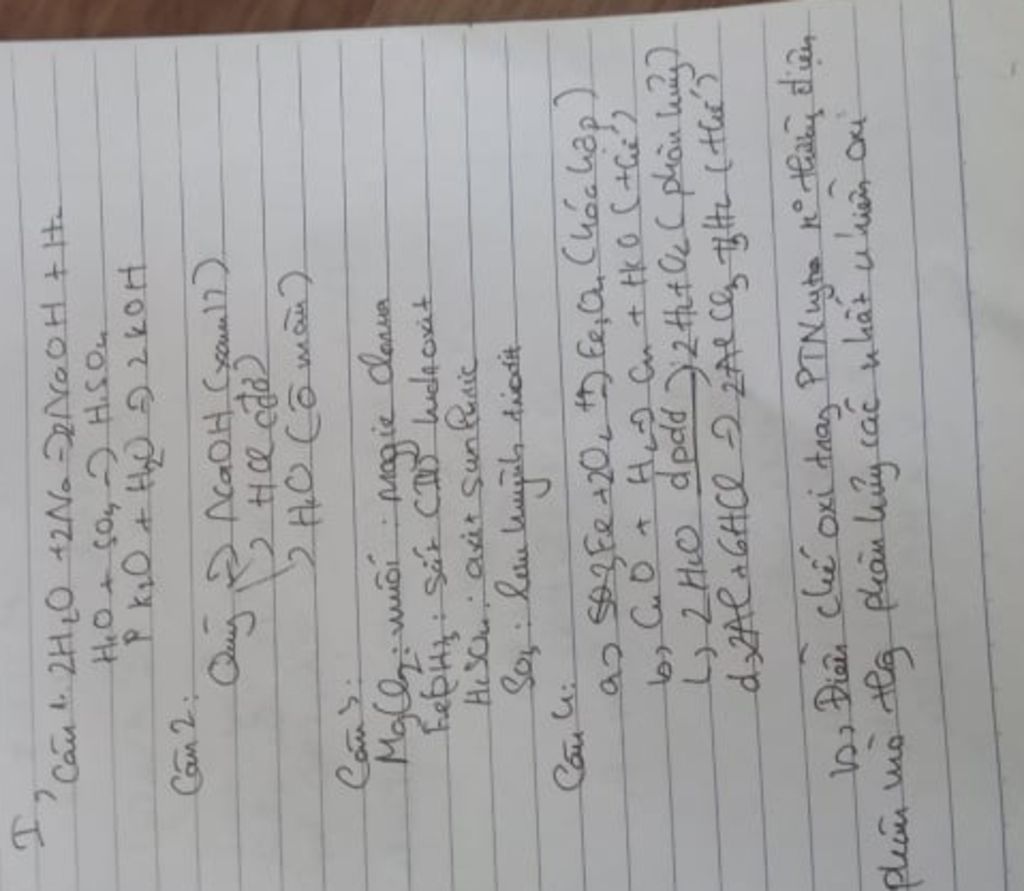 I,
Câu 1: 2H₂O + 2Na → 2NaOH + H₂
H₂O + SO₃ → H₂SO₄
K₂O + H₂O → 2KOH
Câu 2:
Quỳ → NaOH (xanh)
→ HCl (đỏ)
→ H₂O (0 màu)
Câu 3:
MgCl₂: muối: Magie clorua
Fe(OH)₃: sắt (III) hidroxit
H₂SO₄: axit sunfuric
SO₃: lưu huỳnh trioxit
Câu 4:
a, 3Fe + 2O₂ t° → Fe₃O₄ (hóa hợp)
b, CuO + H₂ → Cu + H₂O (thế)
c, 2H₂O đpdd → 2H₂ + O₂ (phân hủy)
d, 2Al + 6HCl → 2AlCl₃ + 3H₂ (thế)
b, Điều chế oxi trong PTN người ta không điện
phân mà phân hủy các chất nhiều oxi